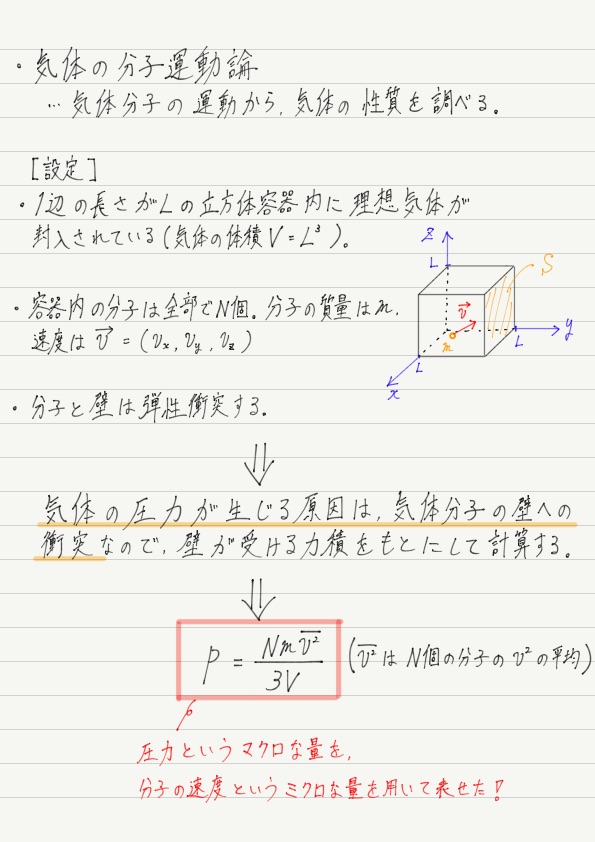 ・気体の分子運動論
… 気体分子の運動から, 気体の性質を調べる。
[設定]
・1辺の長さがLの立方体容器内に理想気体が
封入されている(気体の体積V=L³)。
・容器内の分子は全部でN個。分子の質量はm,
速度は v⃗ = (vx, vy, vz)
z
L
S
v⃗
m
L
y
L
x
・分子と壁は弾性衝突する。
⇓
気体の圧力が生じる原因は, 気体分子の壁への
衝突なので, 壁が受ける力積をもとにして計算する。
⇓
P = Nm v̅²̅ / 3V (v̅²̅ は N個の分子の v² の平均)
圧力というマクロな量を,
分子の速度というミクロな量を用いて表せた!